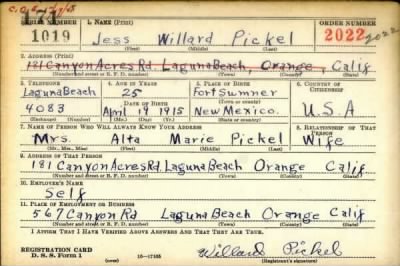 SERIAL NUMBER 1. NAME (Print) ORDER NUMBER
1019 Jess Willard Pickel 2022 2022
(First) (Middle) (Last)
2. ADDRESS (Print)
181 Canyon Acres Rd. Laguna Beach, Orange, Calif
(Number and street or R. F. D. number) (Town) (County) (State)
3. TELEPHONE 4. AGE IN YEARS 5. PLACE OF BIRTH 6. COUNTRY OF CITIZENSHIP
Laguna Beach 25 Fort Sumner
DATE OF BIRTH (Town or county)
4083 April 9 1915 New Mexico. U.S.A
(Exchange) (Number) (Mo.) (Day) (Yr.) (State or country)
7. NAME OF PERSON WHO WILL ALWAYS KNOW YOUR ADDRESS 8. RELATIONSHIP OF THAT PERSON
Mrs Alta Marie Pickel Wife
(Mr., Mrs., Miss) (First) (Middle) (Last)
9. ADDRESS OF THAT PERSON
181 Canyon Acres Rd. Laguna Beach Orange Calif
(Number and street or R. F. D. number) (Town) (County) (State)
10. EMPLOYER'S NAME
Self
11. PLACE OF EMPLOYMENT OR BUSINESS
567 Canyon Rd Laguna Beach Orange Calif
(Number and street or R. F. D. number) (Town) (County) (State)
I AFFIRM THAT I HAVE VERIFIED ABOVE ANSWERS AND THAT THEY ARE TRUE.
REGISTRATION CARD
D. S. S. FORM 1 16—17105 Willard Pickel
(Registrant's signature)